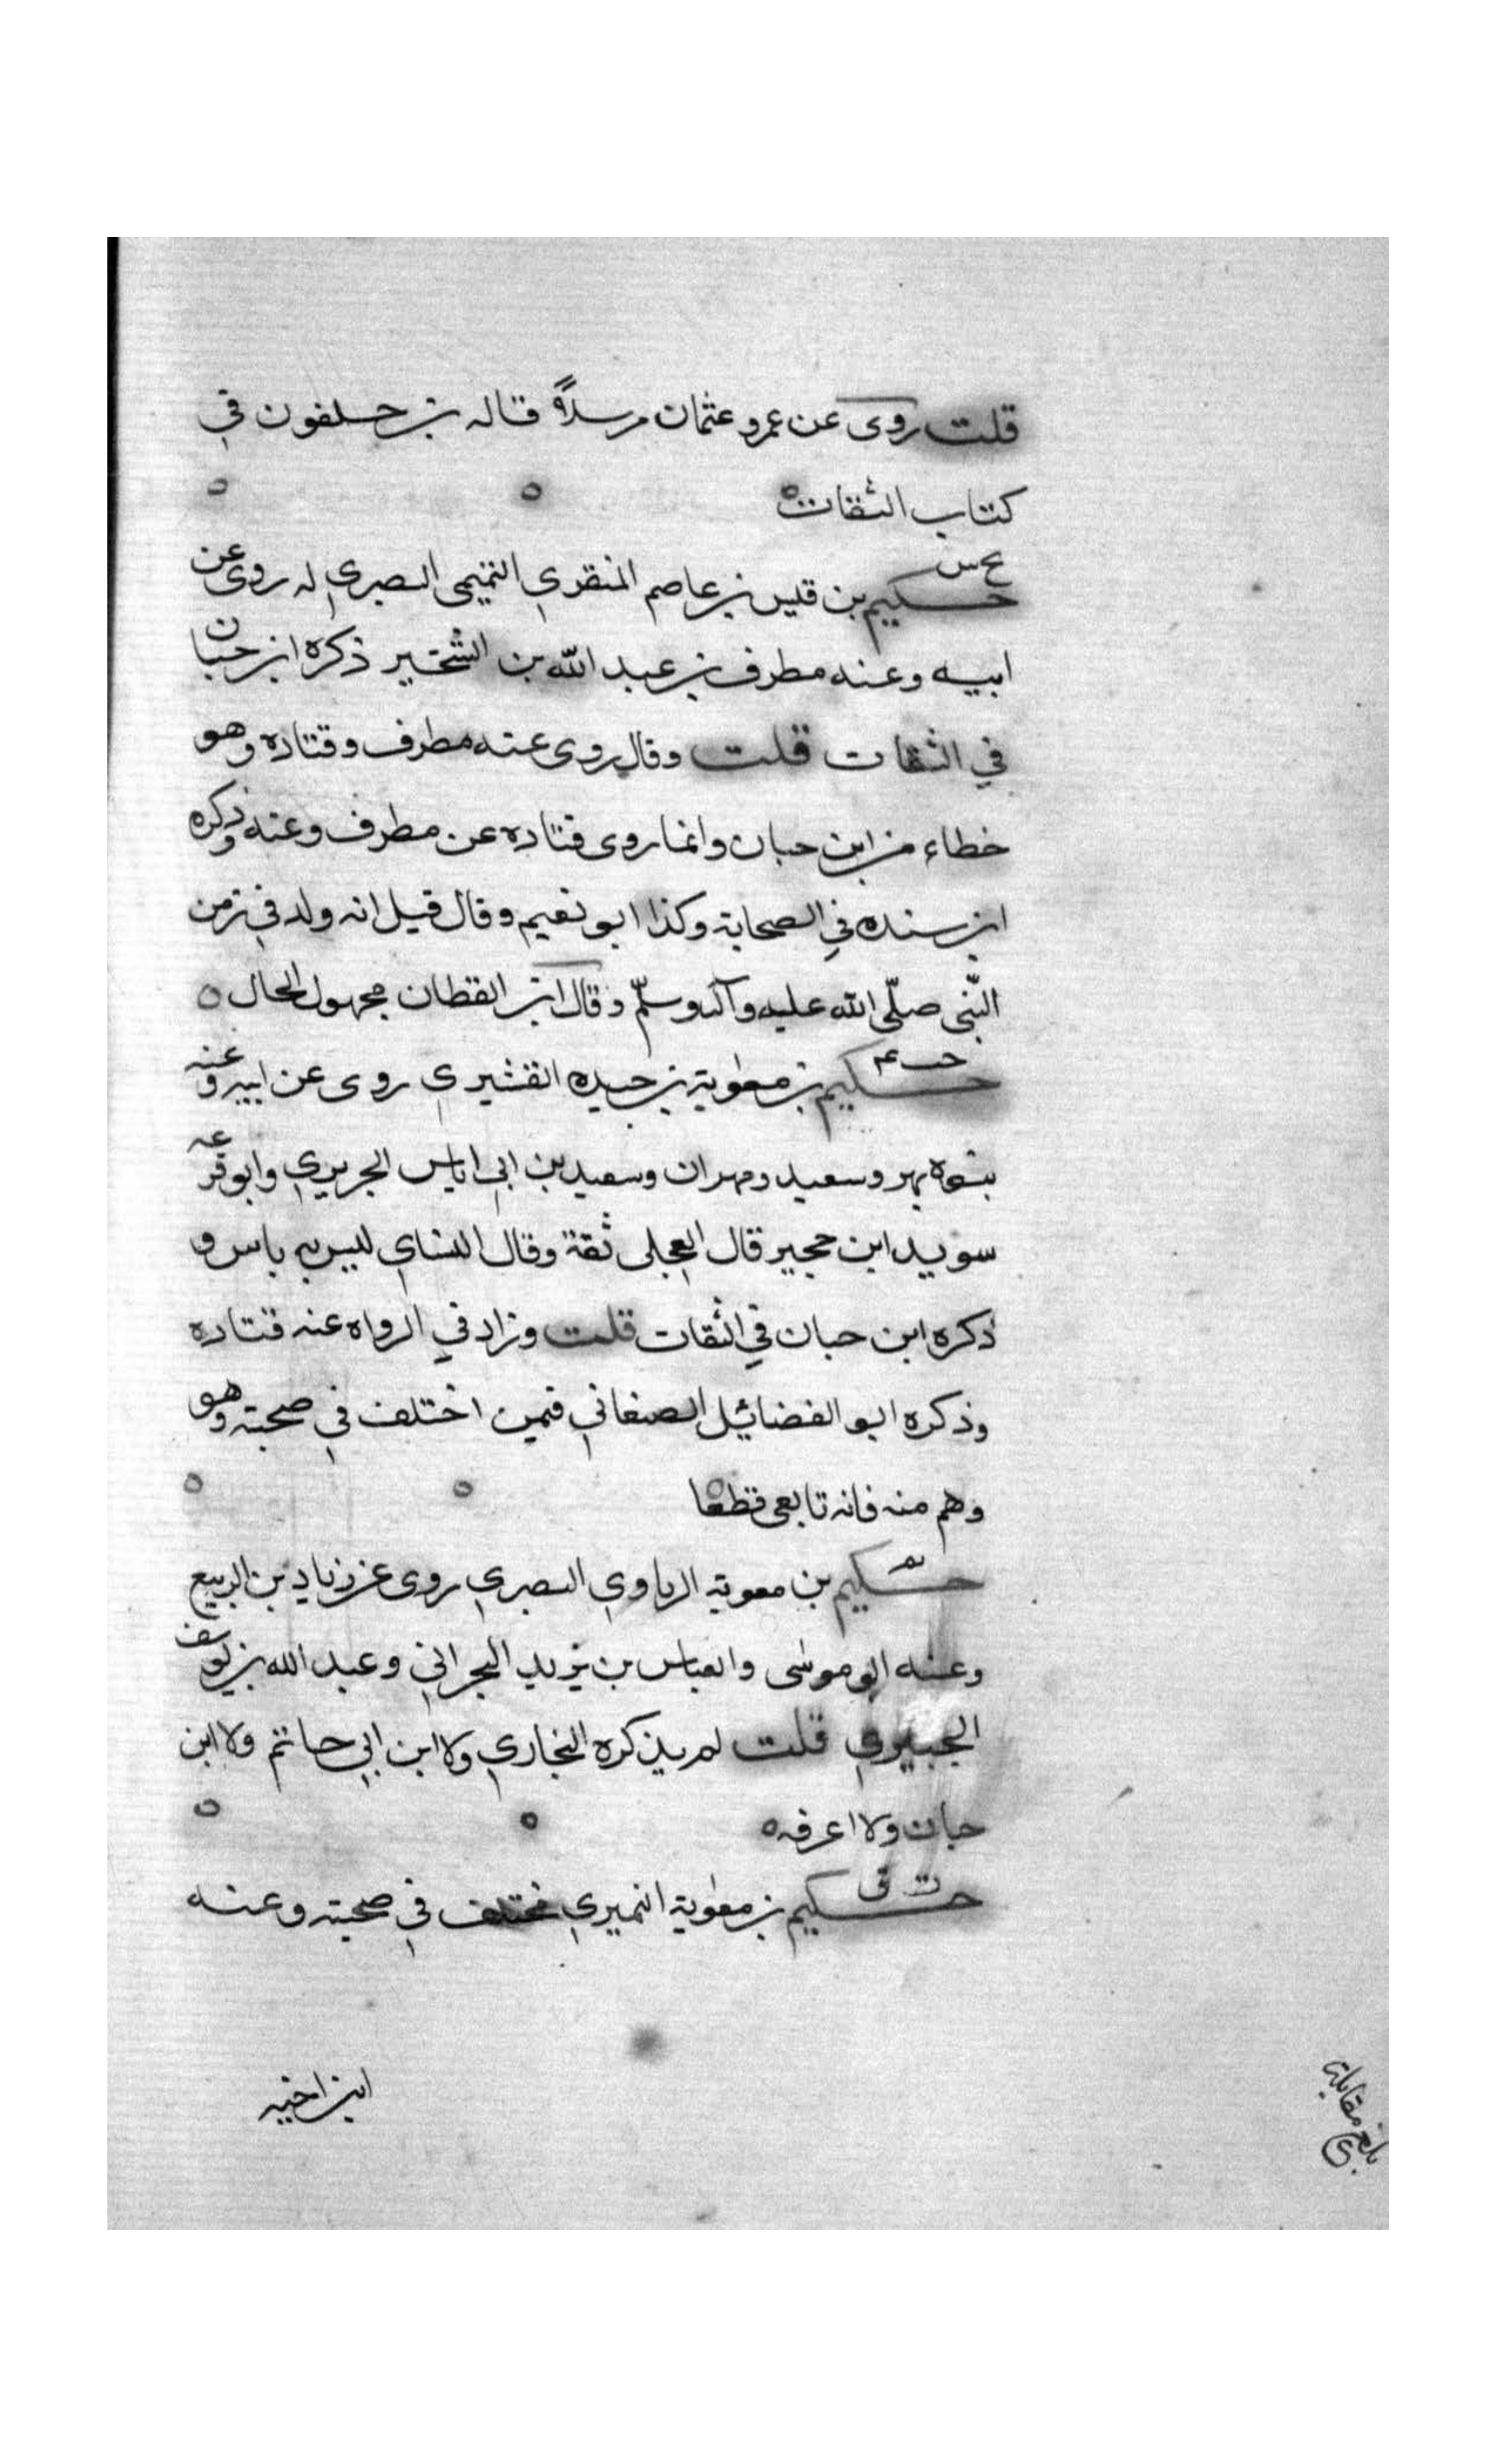 قلت روى عن عمر و عثمان مرسلاً قاله بن حلفون في
كتاب الثقات
بخ س
حكيم بن قيس بن عاصم المنقري التميمي البصري له روى عن
ابيه وعنه مطرف بن عبد الله بن الشخير ذكره ابن حبان
في الثقات قلت وقال روى عنه مطرف وقتاده وهو
خطاء من ابن حبان وانما روى قتاده عن مطرف وعنه وذكره
ابن سنده في الصحابة وكذا ابو نعيم وقال قيل انه ولد في زمن
النّبي صلّى الله عليه وآله وسلّم وقال ابن القطان مجهول الحال
خت ٤
حكيم بن معوية بن حيده القشيري روى عن ابيه وعنه
بنوه بهر وسعيد ومهران وسعيد بن ابي اياس الجريري وابو قزعه
سويد ابن حجير قال العجلي ثقة وقال النساي ليس به باس و
ذكره ابن حبان في الثقات قلت وزاد في الرواه عنه قتاده
وذكره ابو الفضائيل الصغاني فيمن اختلف في صحبته وهو
وهم منه فانه تابعي قطعا
تم
حكيم بن معوية الزياوي البصري روى عن زياد بن الربيع
وعنه ابو موسى والعباس بن يزيد البحراني وعبد الله بن يوسف
الجبيري قلت لم يذكره البخاري ولا ابن ابي حاتم ولا ابن
حبان ولا اعرفه
ت ق
حكيم بن معوية النميري مختلف في صحبته وعنه
ابن اخيه
بلغ مقابلة